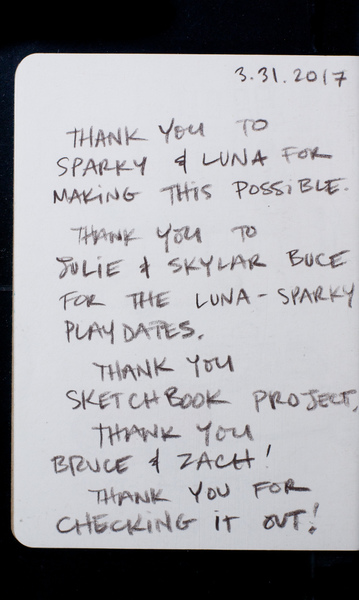 3.31.2017
THANK YOU TO
SPARKY & LUNA FOR
MAKING THIS POSSIBLE.
THANK YOU TO
JULIE & SKYLAR BUCE
FOR THE LUNA-SPARKY
PLAYDATES.
THANK YOU
SKETCHBOOK PROJECT,
THANK YOU
BRUCE & ZACH!
THANK YOU FOR
CHECKING IT OUT!